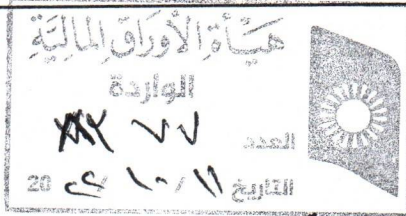 هيأة الأوراق المالية
الواردة
العدد ٧٧
التاريخ ١١ / ١٠ / 20